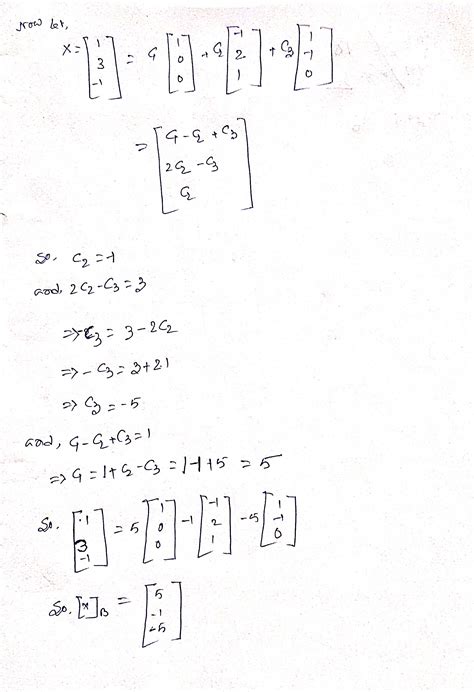 Now let,
X = [1 3 -1] = C₁ [1 0 0] + C₂ [-1 2 1] + C₃ [1 -1 0]
= [C₁ - C₂ + C₃ 2C₂ - C₃ C₂]
So. C₂ = -1
and, 2C₂ - C₃ = 3
⇒ -C₃ = 3 - 2C₂
⇒ -C₃ = 3 + 21
⇒ C₃ = -5
and, C₁ - C₂ + C₃ = 1
⇒ C₁ = 1 + C₂ - C₃ = 1 - 1 + 5 = 5
So. [1 3 -1] = 5 [1 0 0] - 1 [-1 2 1] - 5 [1 -1 0]
So. [x]_B = [5 -1 -5]